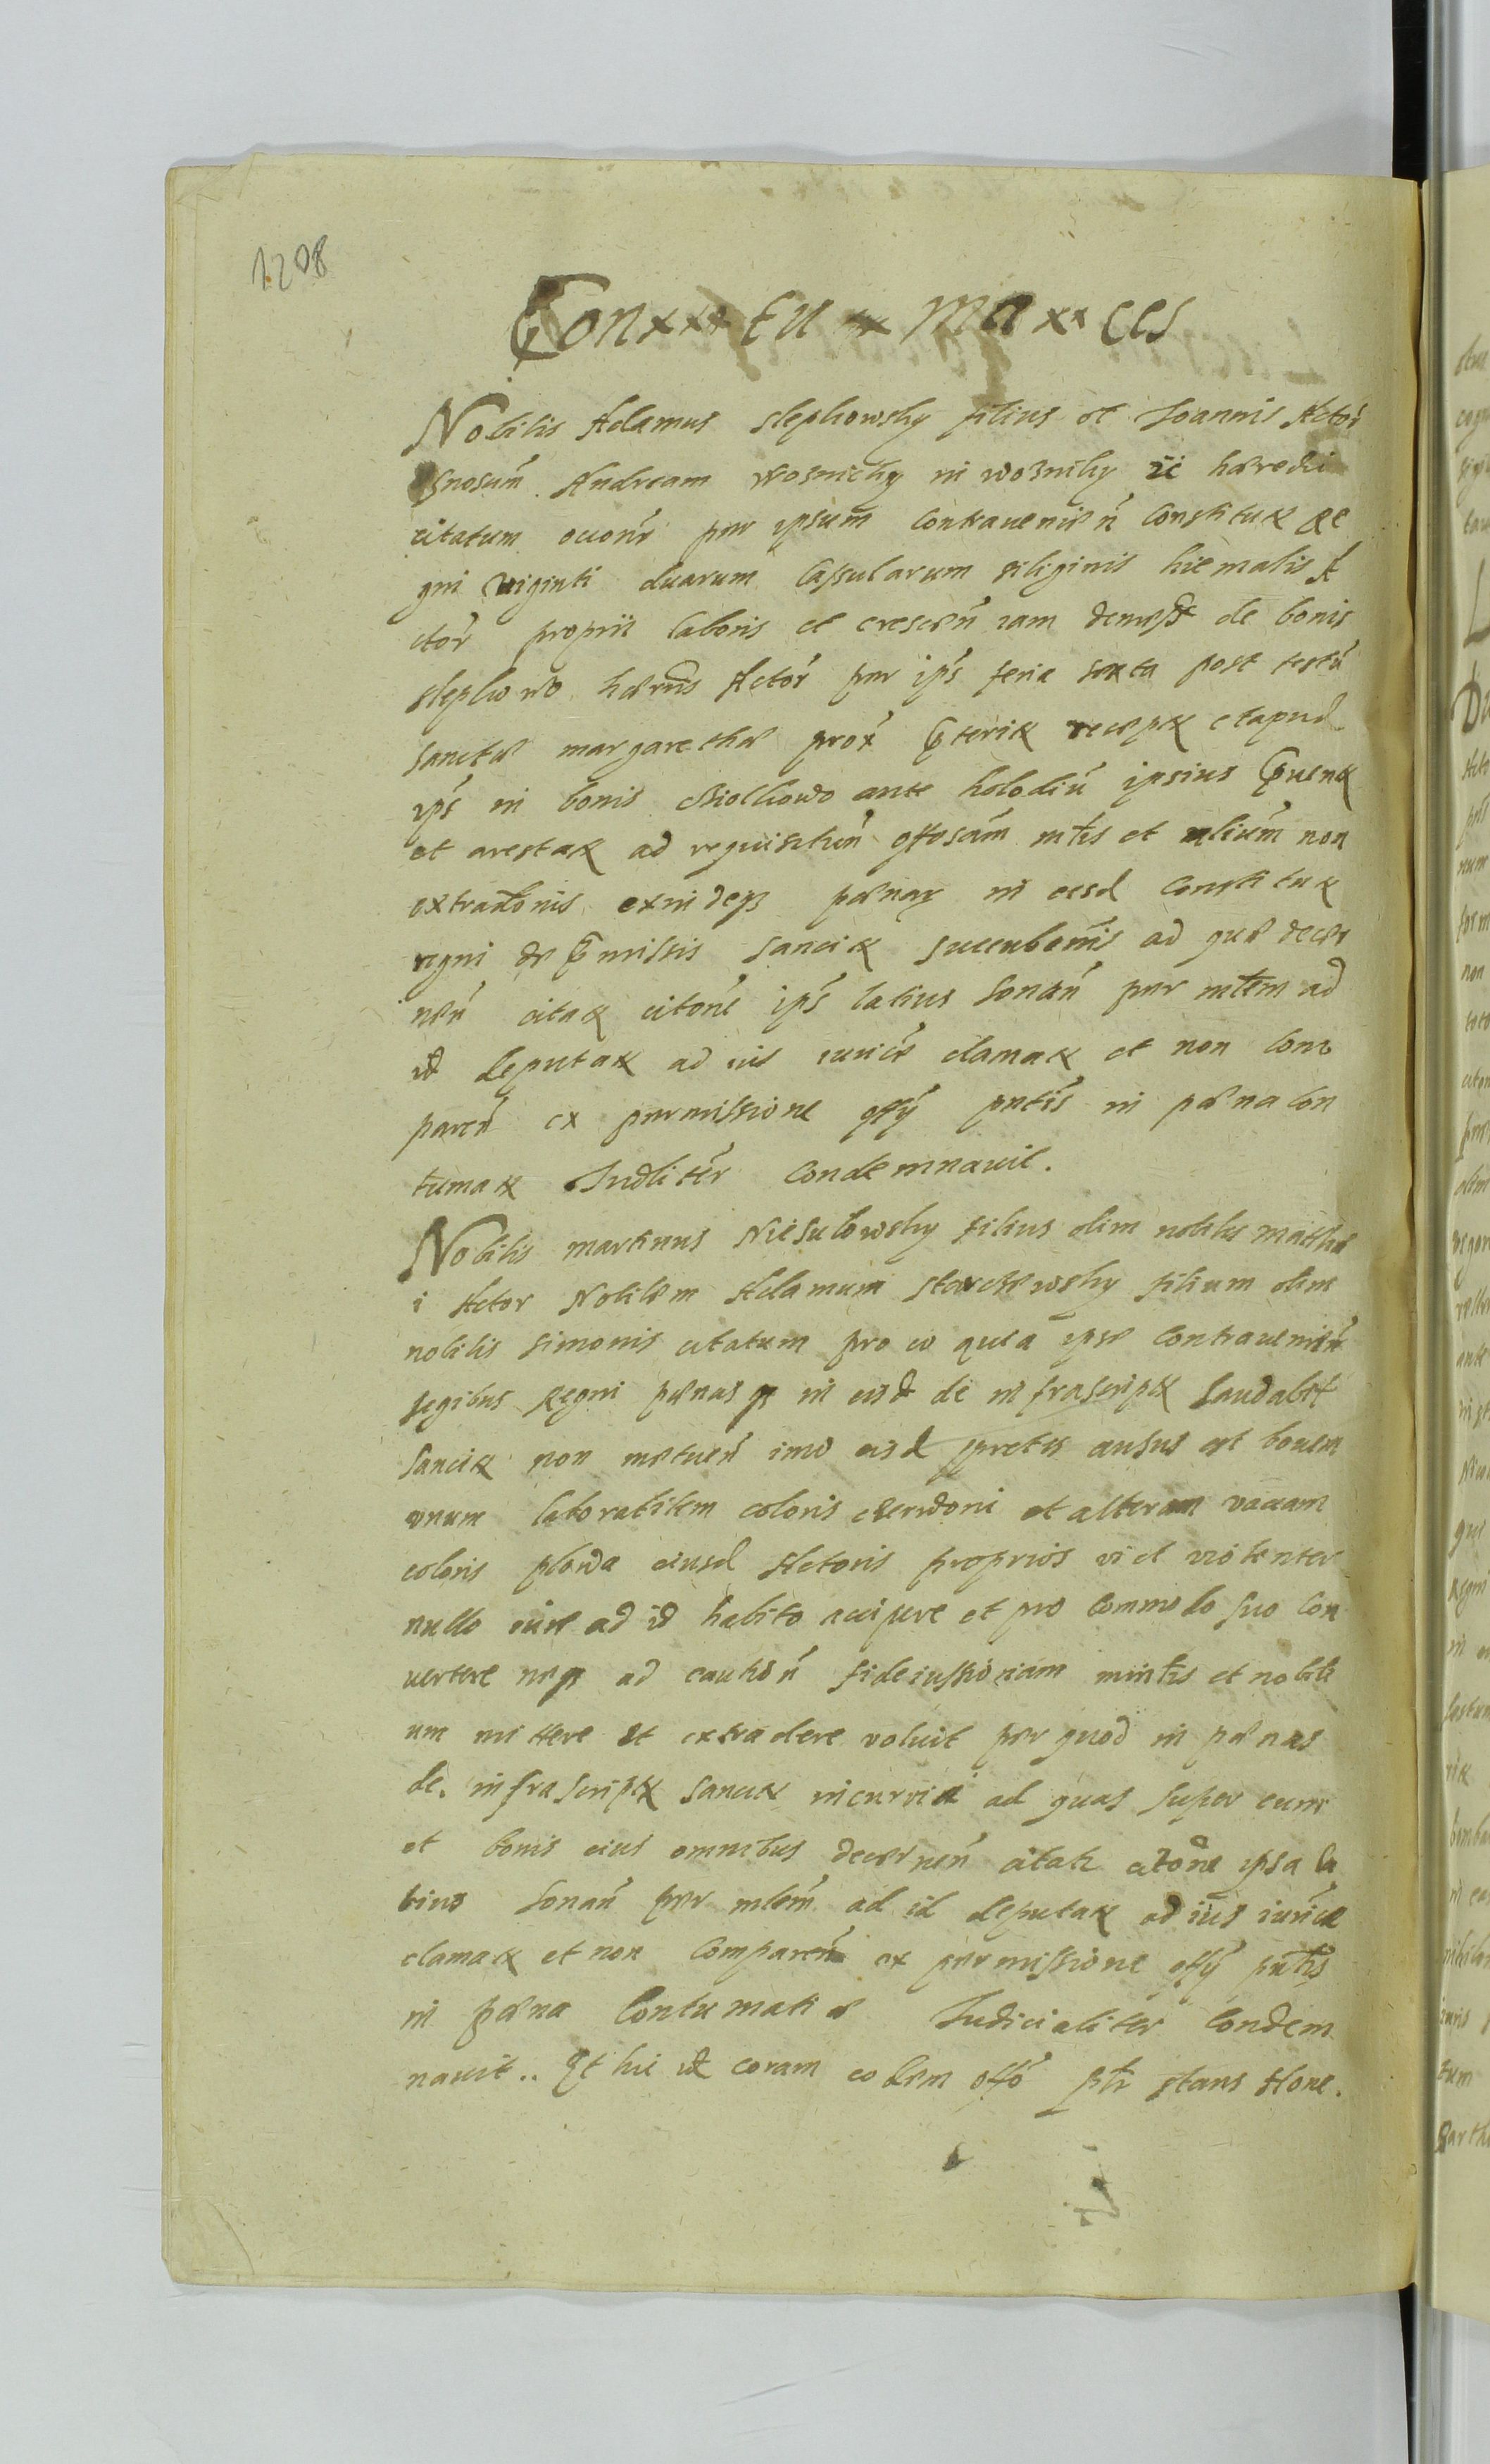 1208
Con*** tu ** ma ** ces
Nobilis Adamus slepkowsky filius ol Joannis Actor
gnosum Andream wosnicky in wozniky ii hæredem
citatum per ipsum contravenien constitut Re
gni viginti duarum Cassularum siliginis hiemalis A
ctor proprii laboris et crescen iam de bonis
slepkowo Actor per ips feria sexta post festu
sanctæ margarethæ prox recept et apud
ips in bonis ante ipsius
et arestat ad requisitiun offosam mtis et alium non
extradonis exindeq pænar in eisd constitut
regni de missis sancit succubonis ad quæ decer
nen citat citone ips latius sonan per mtem ad
id deputat ad ius iurice clamat et non com
paren ex permissione offy pntis in pæna con
tumax Judliter condemnavit.
Nobilis martinus Niesulowsky filius olim nobilis matthæ
i Actor Nobilem Adamum filium olim
nobilis simonis citatum pro eo quia ipse contravenien
legibus Regni pænasq in eisd de infrascript laudabit
sancit non metuen imo eisd spretis ausus est bovem
unum laborabilem coloris et alteram vaccam
coloris plowa eiusd Actoris proprios vi et violenter
nullo iure ad id habito accipere et pro commodo suo con
vertere neq ad caution fideiussioriam mintis et nobili
um mittere et extradere voluit per quod in pænas
de infrascript sancit incurrit ad quas super eum
et bonis eius omnibus decernen citati citone ipsa la
tius sonan per mtem ad id deputat ad ius iurice
clamat et non comparen ex permissione offy pntis
in pæna contumatiæ Judicialiter condem
navit.. Et hic id coram eodem offo stans